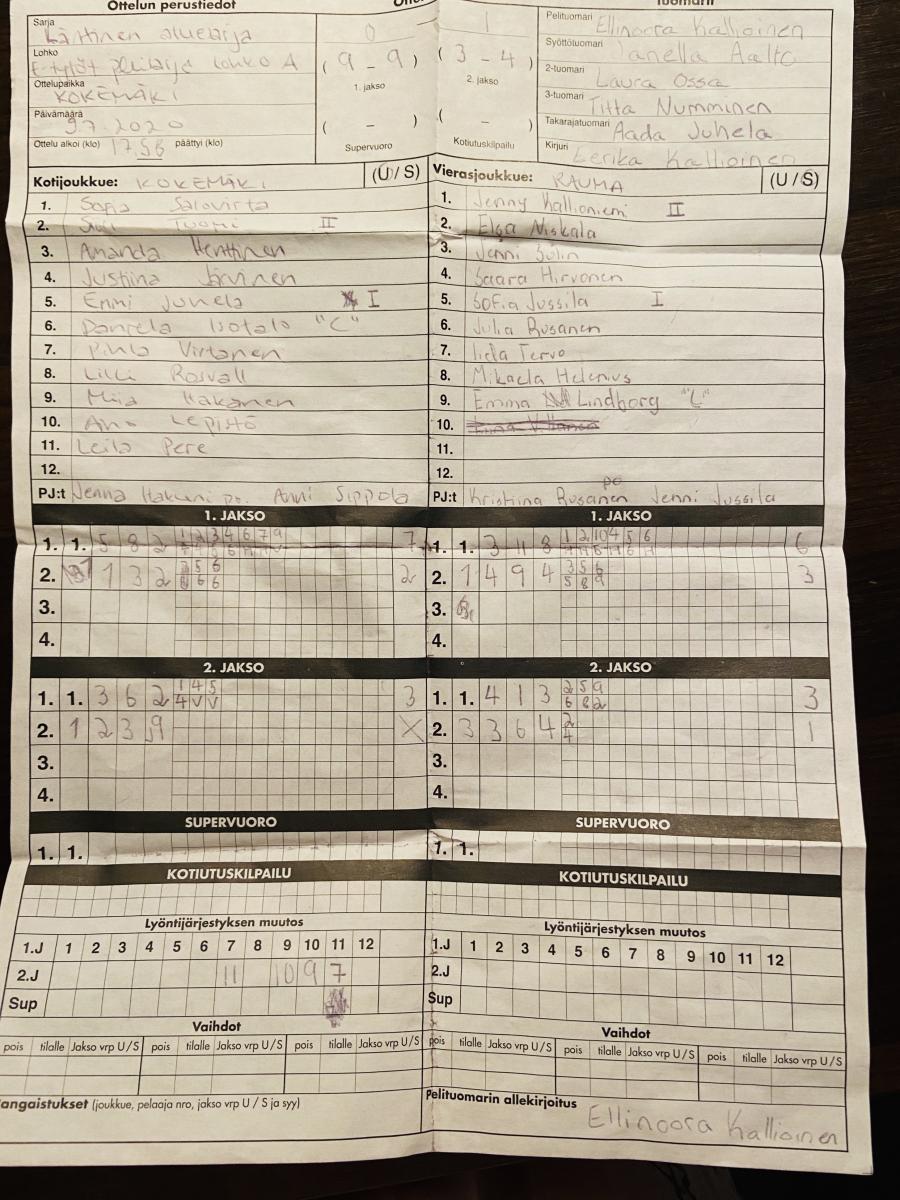 Ottelun perustiedot
Tuomarit
Sarja
Läntinen aluesarja
0 1
Pelituomari Ellinoora Kallioinen
Lohko
E-tytöt lohko A
( 9 - 9 ) ( 3 - 4 )
Syöttötuomari Janella Aalto
1. jakso 2. jakso
2-tuomari Laura Ossa
Ottelupaikka
KOKEMÄKI
3-tuomari Titta Numminen
Päivämäärä
9.7.2020
( - ) ( - )
Takarajatuomari Aada Juhela
Ottelu alkoi (klo) 17.56 päättyi (klo)
Supervuoro Kotiutuskilpailu
Kirjuri Eerika Kallioinen
Kotijoukkue: KOKEMÄKI (U / S)
Vierasjoukkue: RAUMA (U / S)
1. Sofia Salovirta
1. Jenny Kallioniemi II
2. Tuomi II
2. Elga Niskala
3. Amanda Henttinen
3. Jenni Sulin
4. Justiina Järvinen
4. Saara Hirvonen
5. Emmi Juhela I
5. Sofia Jussila I
6. Daniela Isotalo "C"
6. Julia Rusanen
7. Pihla Virtanen
7. Iida Tervo
8. Lilli Rosvall
8. Mikaela Helenius
9. Miia Hakanen
9. Emma Lindborg "C"
10. Anu Lepistö
10.
11. Leila Pere
11.
12.
12.
PJ:t Jenna Hakuni po. Anni Sippola
PJ:t Kristiina Rusanen po Jenni Jussila
1. JAKSO
1. JAKSO
1. 1. 5 8 2 1 2 3 4 6 7 9 7
1. 1. 3 11 8 1 2 10 4 5 6 6
2. 1 3 2 3 5 6 6 6 2
2. 1 4 9 4 3 5 6 5 8 9 3
3.
3.
4.
4.
2. JAKSO
2. JAKSO
1. 1. 3 6 2 1 4 5 4 V V 3
1. 1. 4 1 3 2 5 9 6 8 2 3
2. 1 2 3 9 X
2. 3 3 6 4 2 4 1
3.
3.
4.
4.
SUPERVUORO
SUPERVUORO
1. 1.
1. 1.
KOTIUTUSKILPAILU
KOTIUTUSKILPAILU
Lyöntijärjestyksen muutos
Lyöntijärjestyksen muutos
1.J 1 2 3 4 5 6 7 8 9 10 11 12
1.J 1 2 3 4 5 6 7 8 9 10 11 12
2.J 11 10 9 7
2.J
Sup
Sup
Vaihdot
Vaihdot
pois tilalle Jakso vrp U / S pois tilalle Jakso vrp U / S pois tilalle Jakso vrp U / S
pois tilalle Jakso vrp U / S pois tilalle Jakso vrp U / S pois tilalle Jakso vrp U / S
angaistukset (joukkue, pelaaja nro, jakso vrp U / S ja syy)
Pelituomarin allekirjoitus
Ellinoora Kallioinen